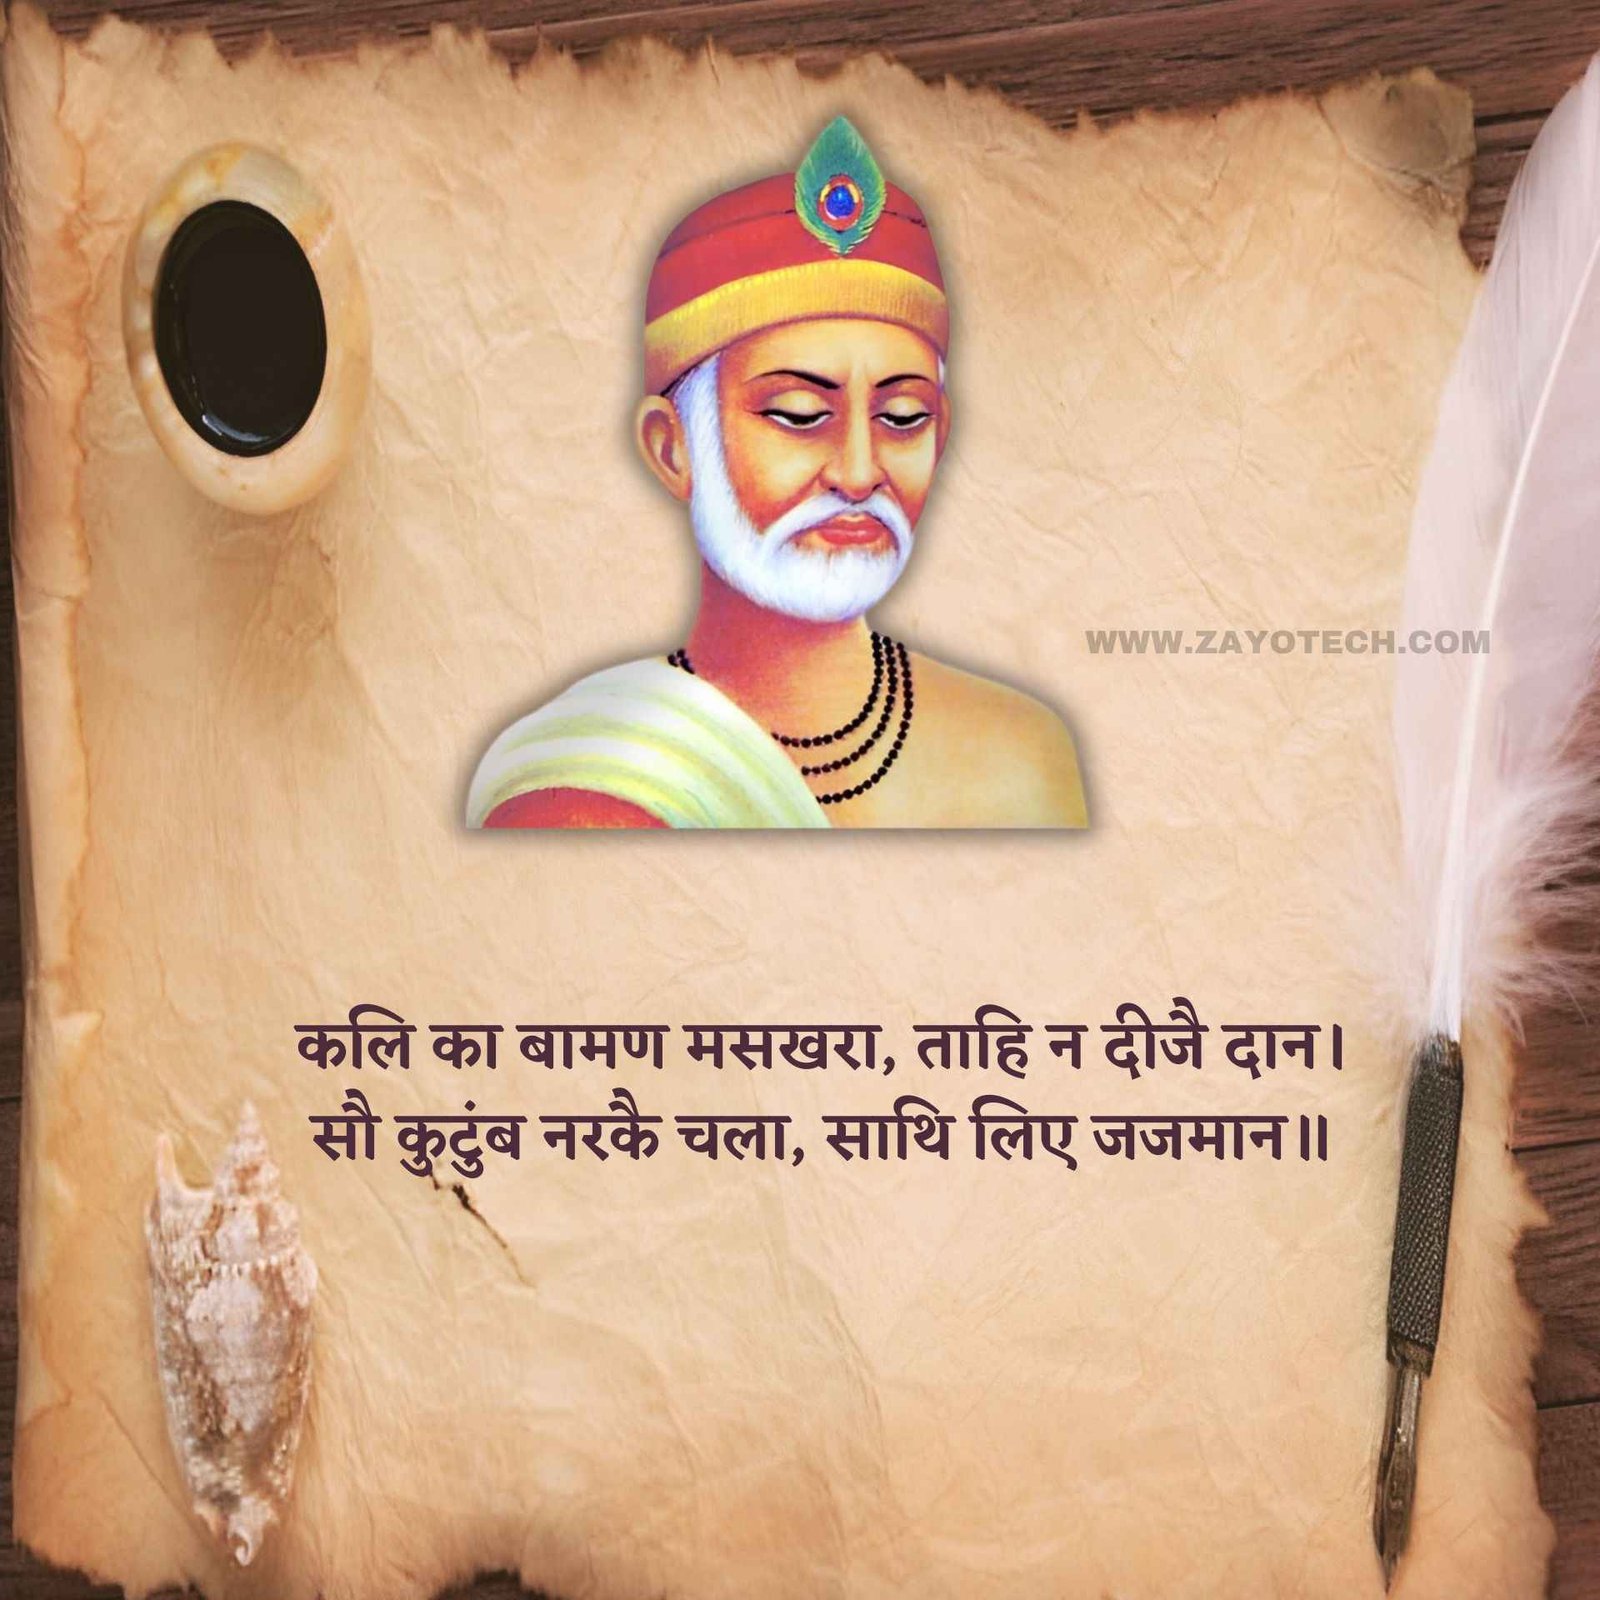 WWW.ZAYOTECH.COM
कलि का बामण मसखरा, ताहि न दीजै दान।
सौ कुटुंब नरकै चला, साथि लिए जजमान॥